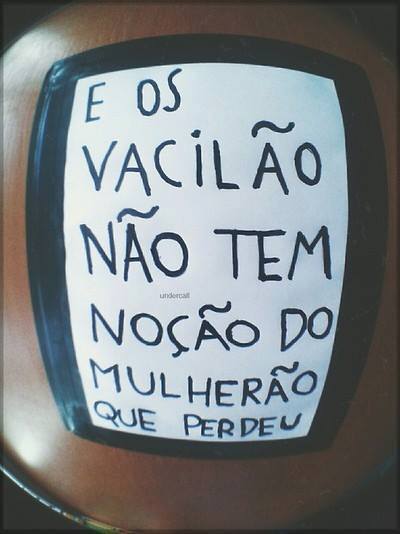 E OS
VACILÃO
NÃO TEM
undercall
NOÇÃO DO
MULHERÃO
QUE PERDEU